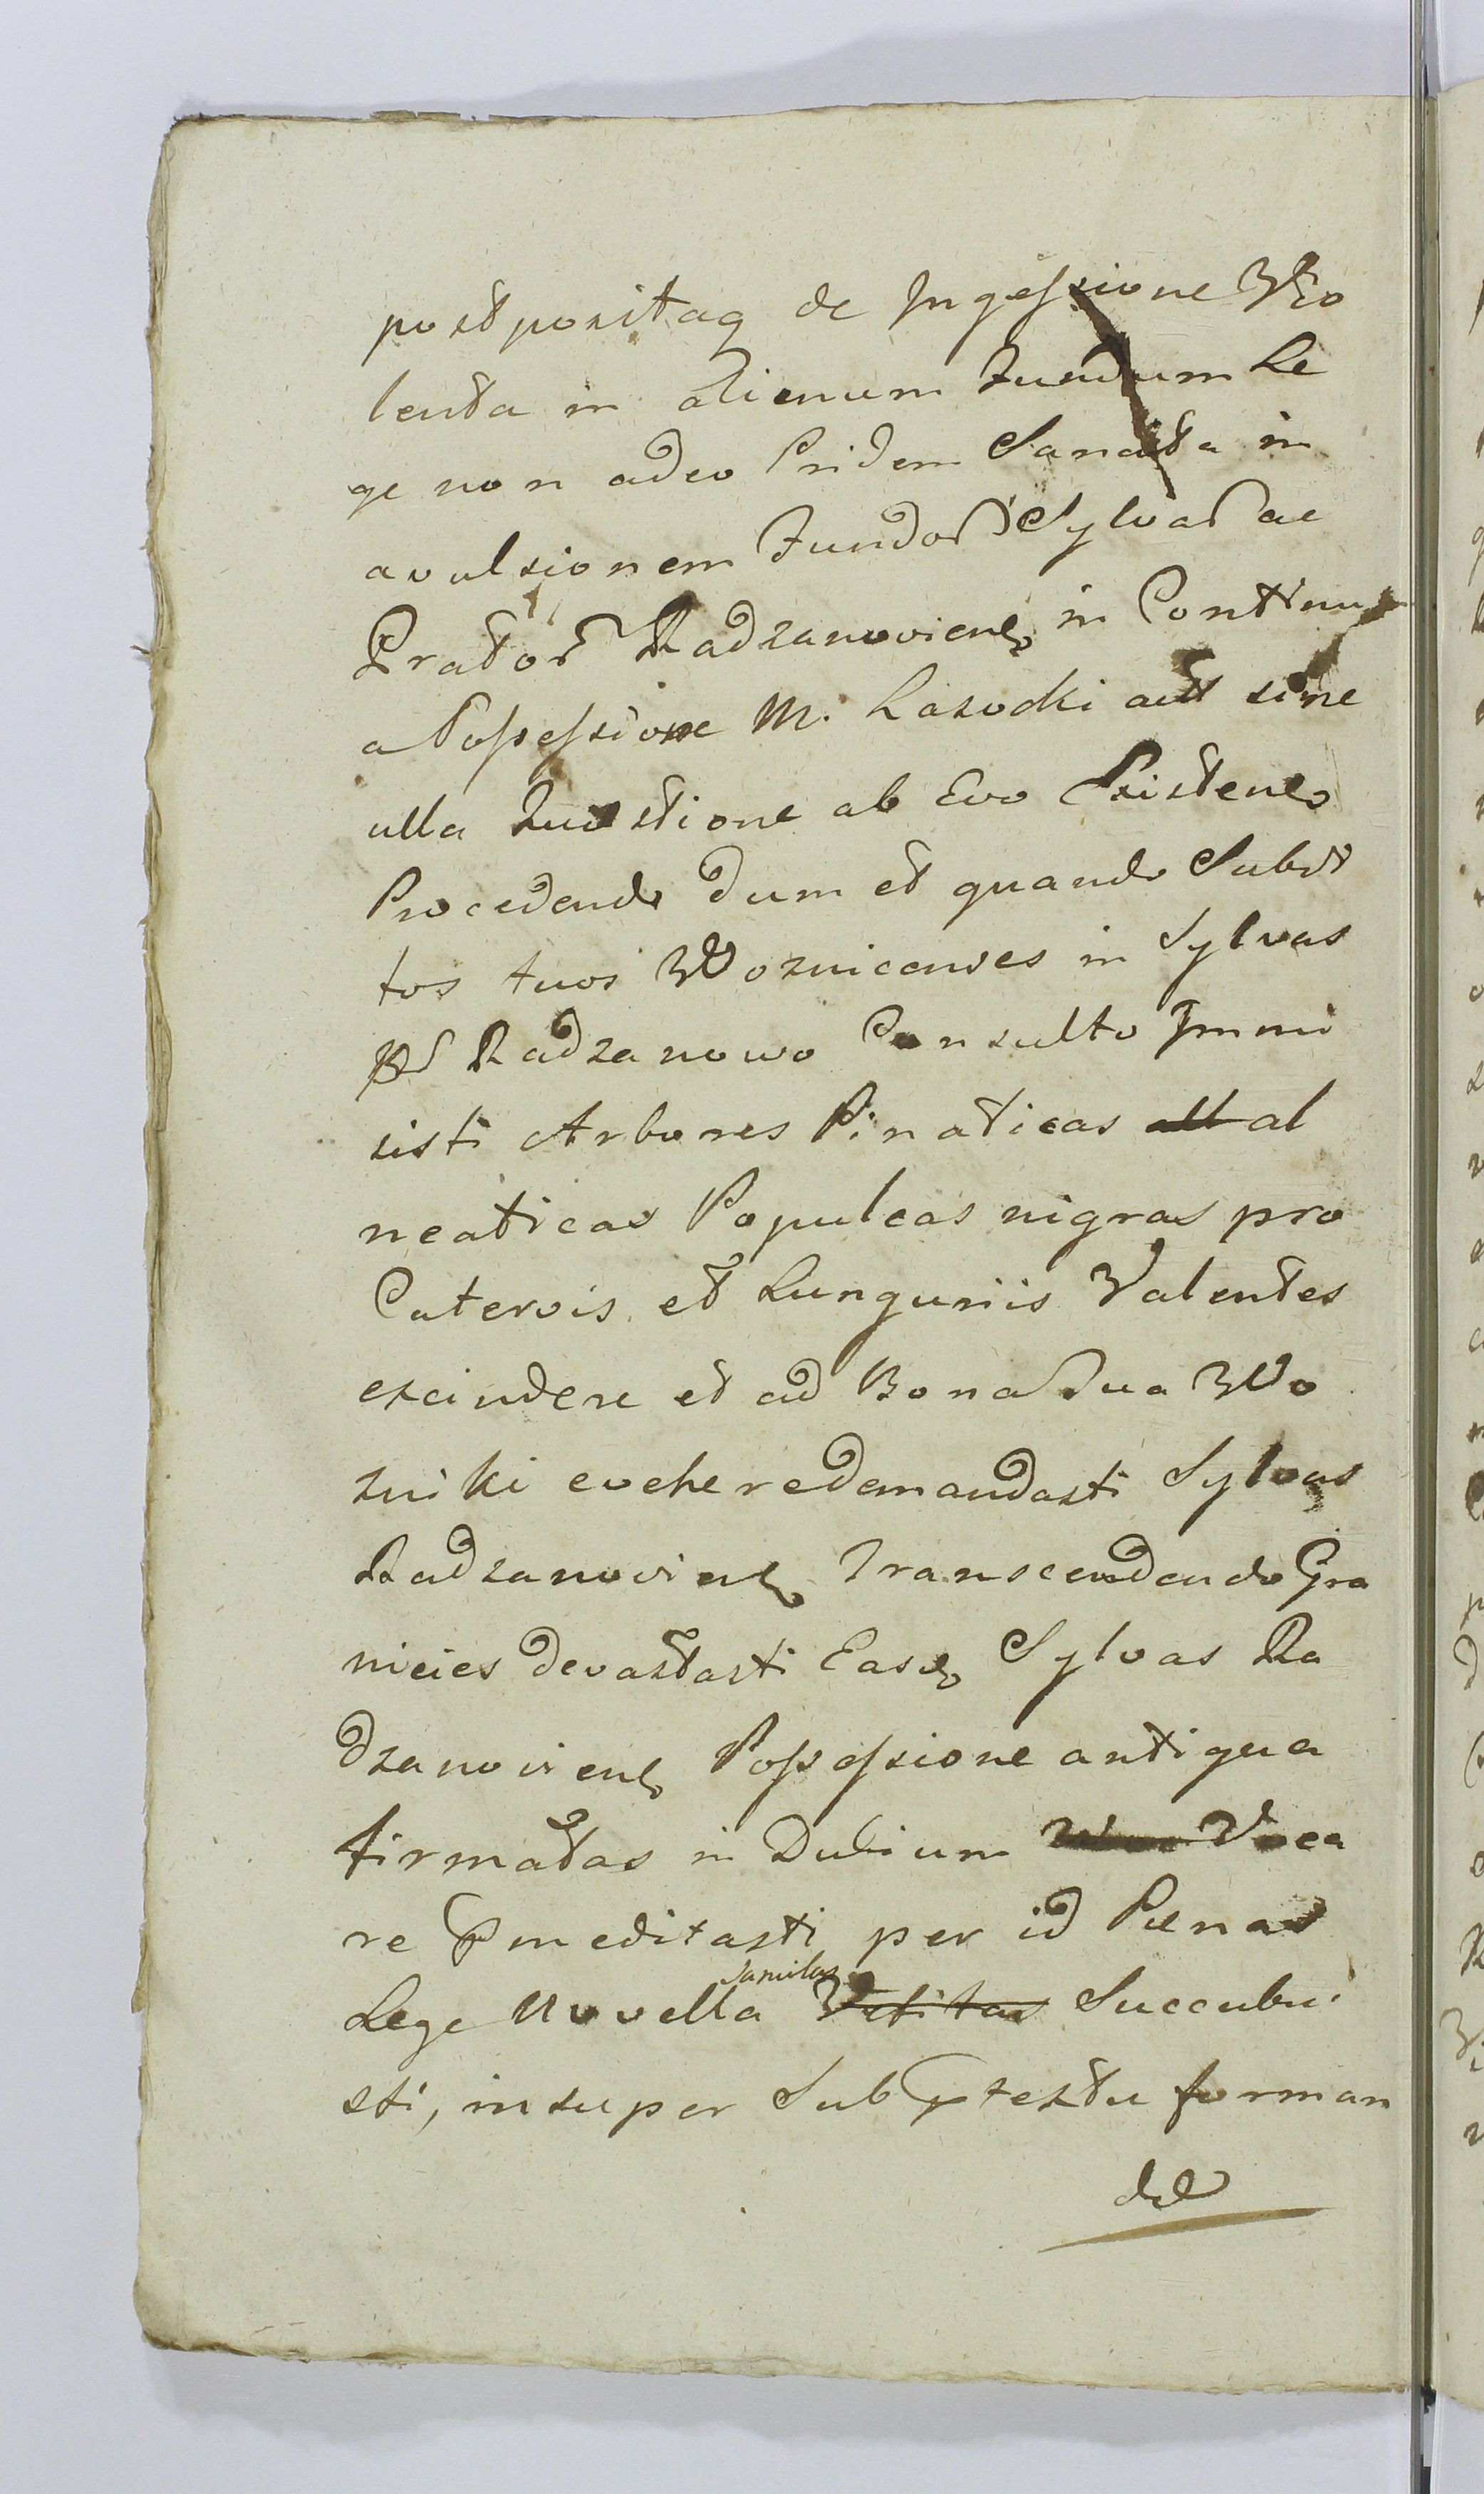 postpositaq de Ingessione Vio
lenta in alienum Fundum Le
ge non adeo Pridem Sancita in
avulsionem Fundor Sylvar ac
Prator Radzanoviens in Continua
a Possessione M. Lasocki aut sine
ulla Quæstione ab Evo Existens
Procedendo dum et quando Subdi
tos tuos Woznicenses in Sylvas
Radzanowo Consulto Immi
sisti Arbores Pinaticas all al
neaticas Populeas nigras pro
Catervis et Lunguriis Valentes
excindere et ad Bona Tua Wo
zniki evehere demandasti Sylvas
Radzanoviens Transcendendo Gra
nicies devastasti Easq Sylvas Ra
dzanoviens Possessione antiqua
firmatas in Dubium Voca
re Pmeditasti per id Pænas
Lege Novella Sancitas Vetitas Succubui
sti, insuper Sub Ptextu forman